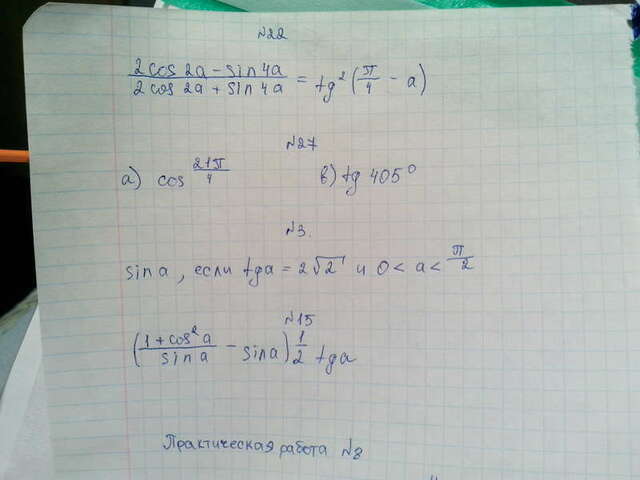 №22
(2cos 2a - sin 4a)/(2cos 2a + sin 4a) = tg²(π/4 - a)
№27
а) cos 21π/4 в) tg 405°
№3.
sin a, если tga = 2√2 и 0 < a < π/2
№15
((1 + cos²a)/(sin a) - sin a) 1/2 tga
Практическая работа №8